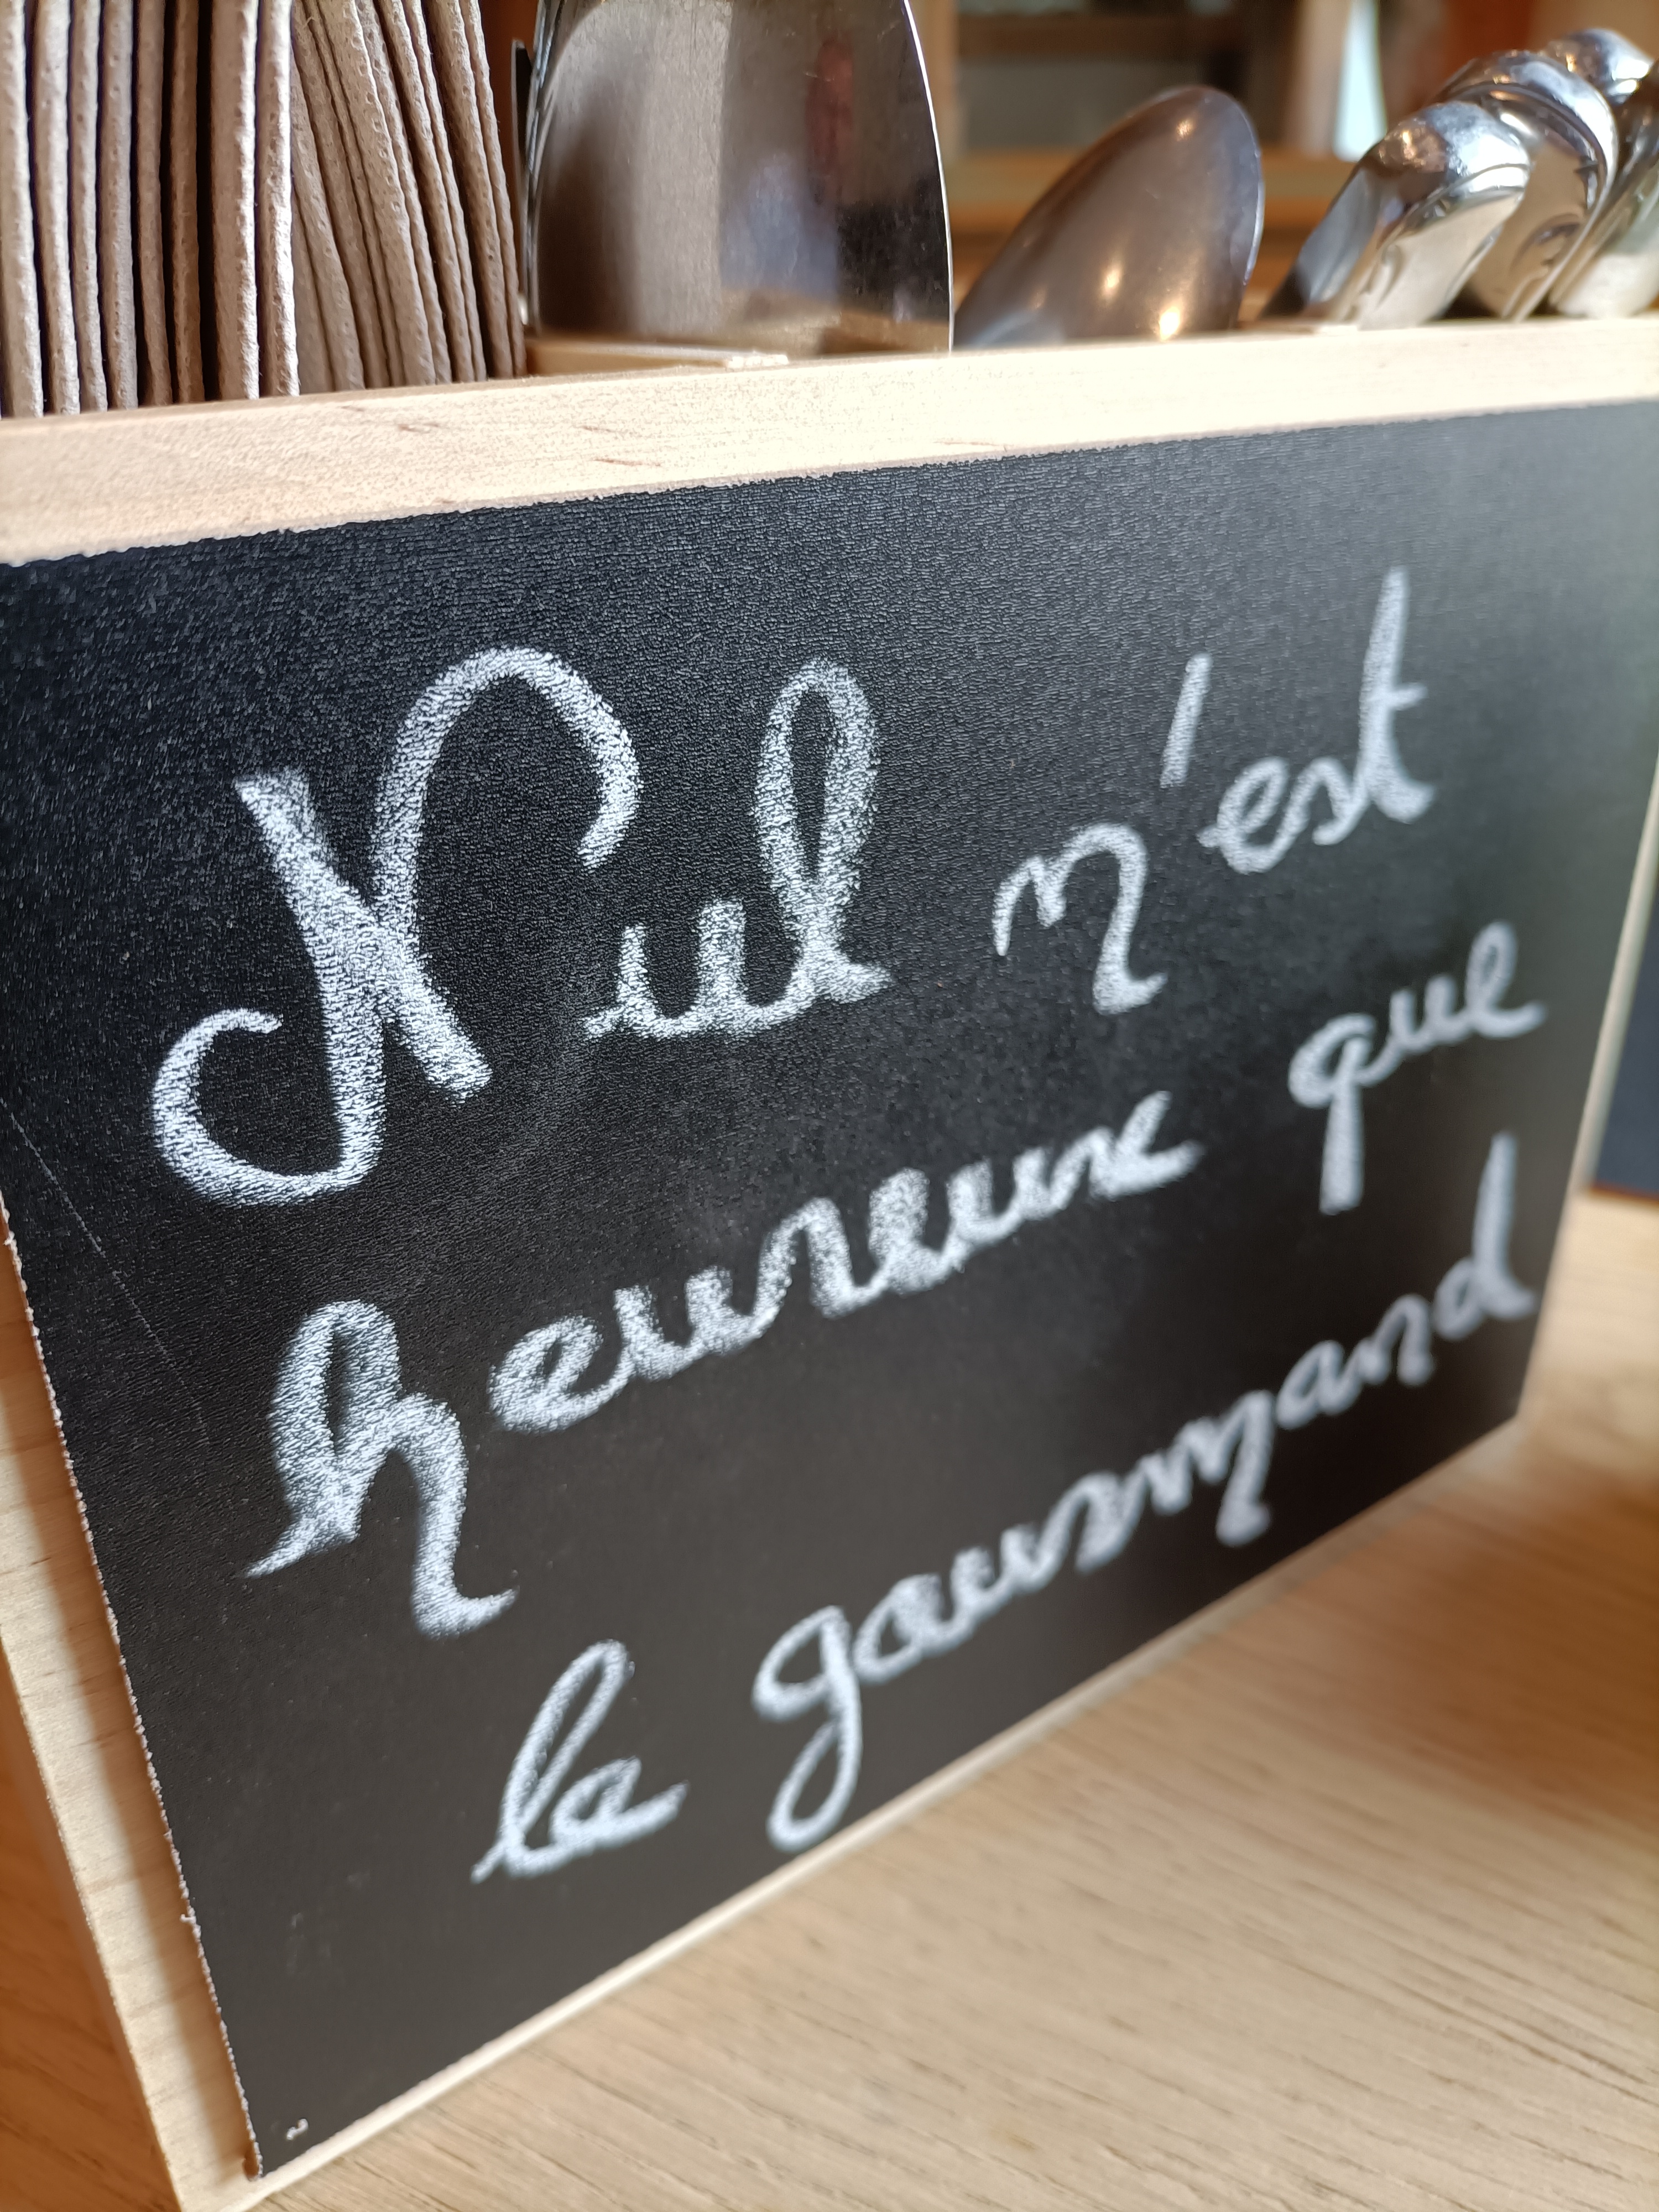 Nul n'est
heureux que
le gourmand